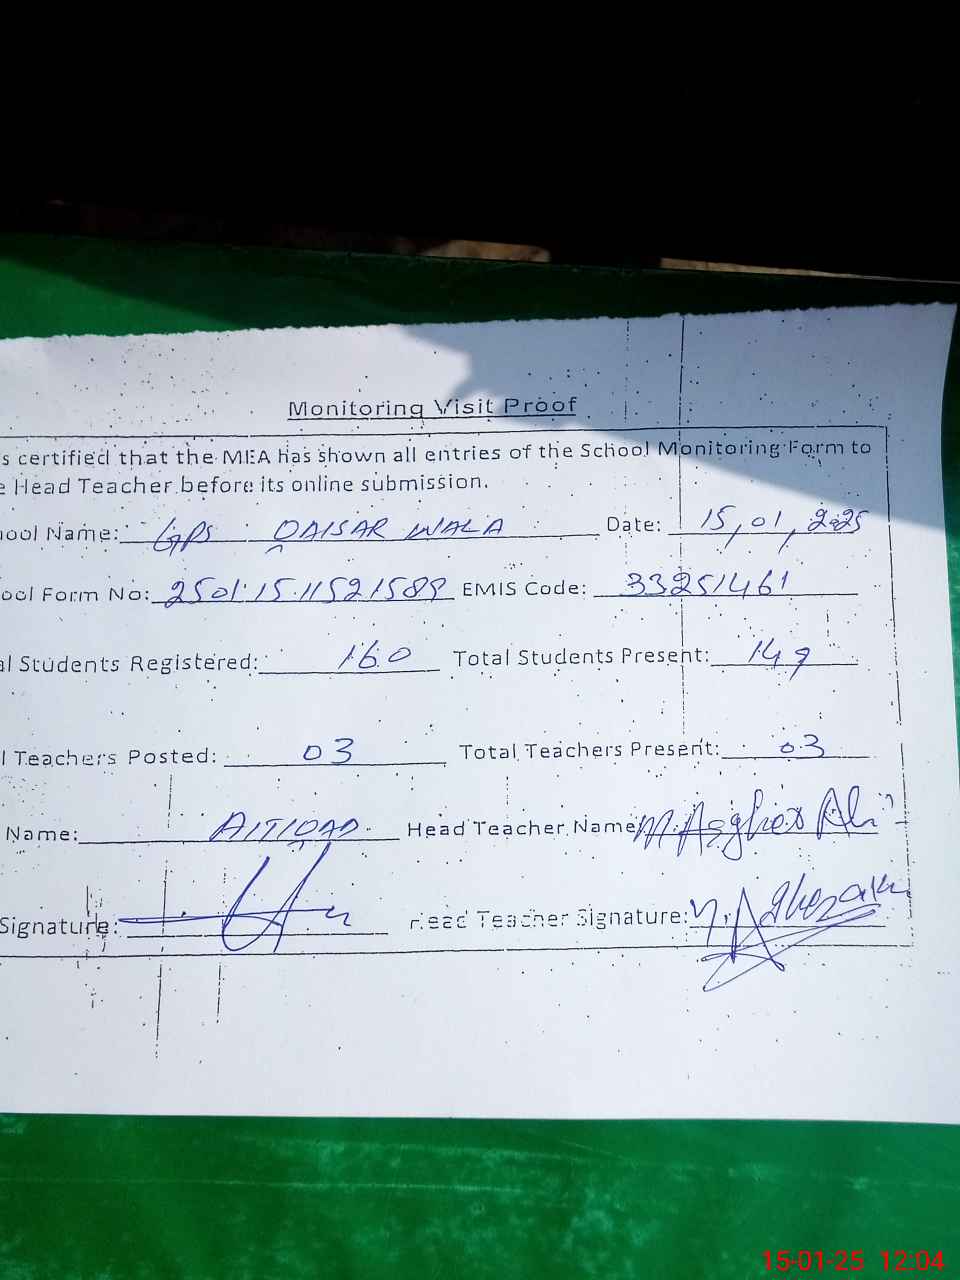 Monitoring Visit Proof
s certified that the MEA has shown all entries of the School Monitoring Form to
e Head Teacher before its online submission.
ool Name: GPS QAISAR WALA Date: 15, 01, 2025
ool Form No: 2501.15.11521589 EMIS Code: 33251461
al Students Registered: 160 Total Students Present: 149
l Teachers Posted: 03 Total Teachers Present: 03
Name: AITIQAD. Head Teacher Name M. Asgher Ali
Signature: Head Teacher Signature:
15-01-25 12:04